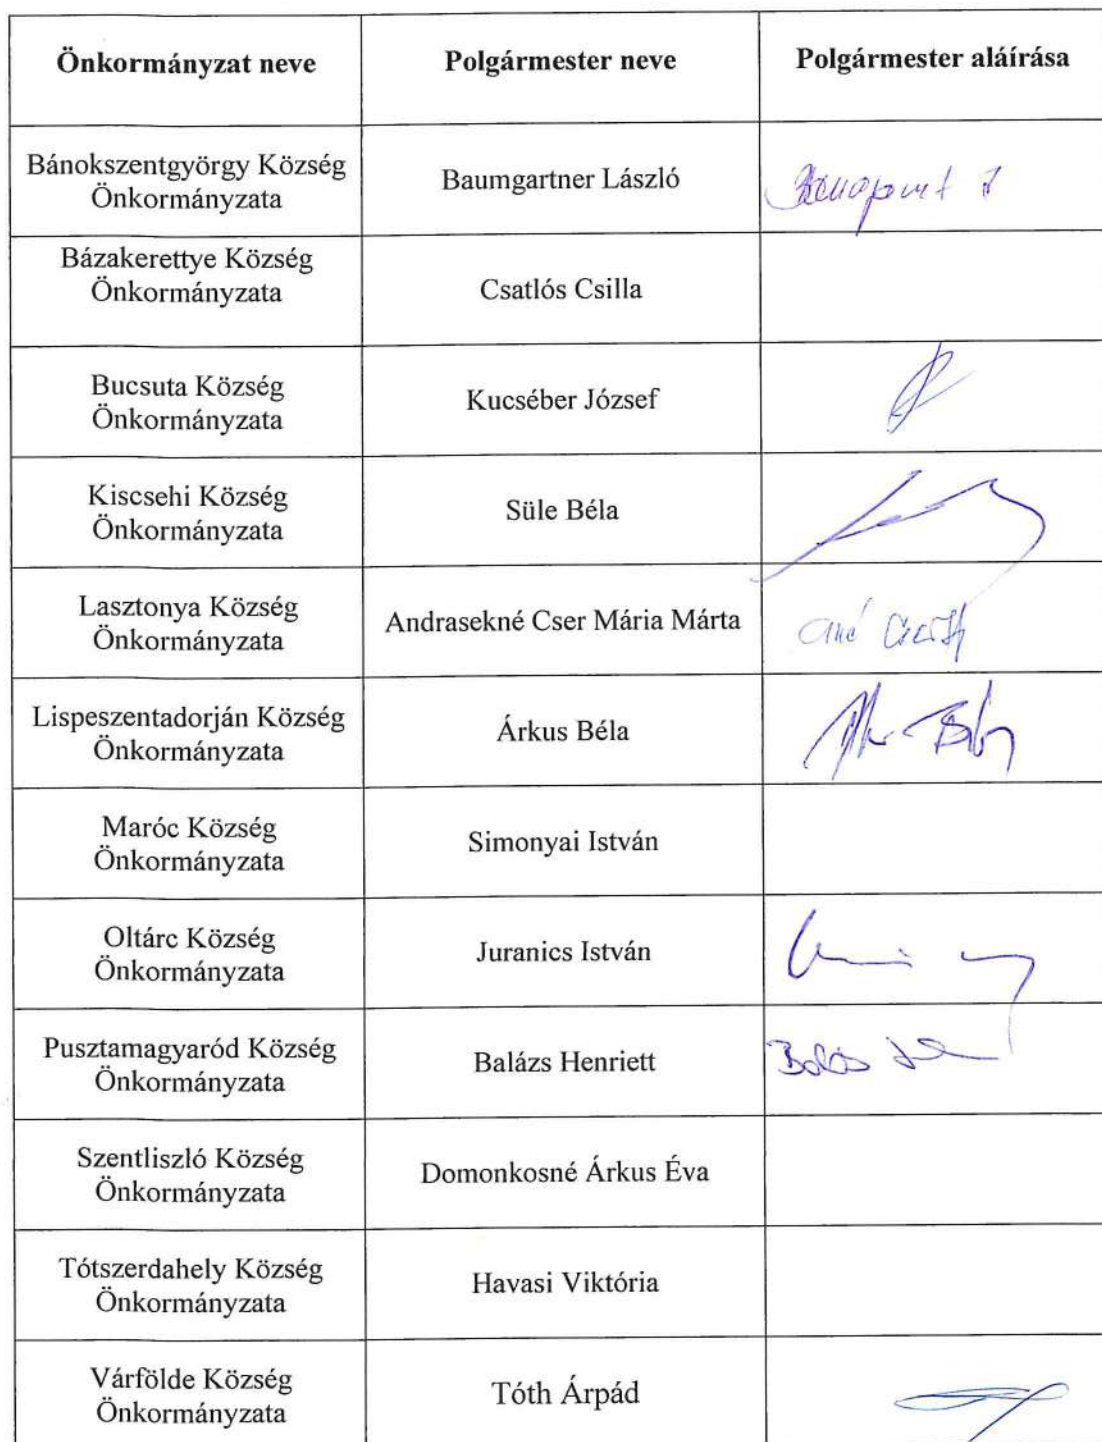 Önkormányzat neve
Polgármester neve
Polgármester aláírása
Bánokszentgyörgy Község
Önkormányzata
Baumgartner László
Bázakerettye Község
Önkormányzata
Csatlós Csilla
Bucsuta Község
Önkormányzata
Kucséber József
Kiscsehi Község
Önkormányzata
Süle Béla
Lasztonya Község
Önkormányzata
Andrasekné Cser Mária Márta
Lispeszentadorján Község
Önkormányzata
Árkus Béla
Maróc Község
Önkormányzata
Simonyai István
Oltárc Község
Önkormányzata
Juranics István
Pusztamagyaród Község
Önkormányzata
Balázs Henriett
Szentliszló Község
Önkormányzata
Domonkosné Árkus Éva
Tótszerdahely Község
Önkormányzata
Havasi Viktória
Várfölde Község
Önkormányzata
Tóth Árpád